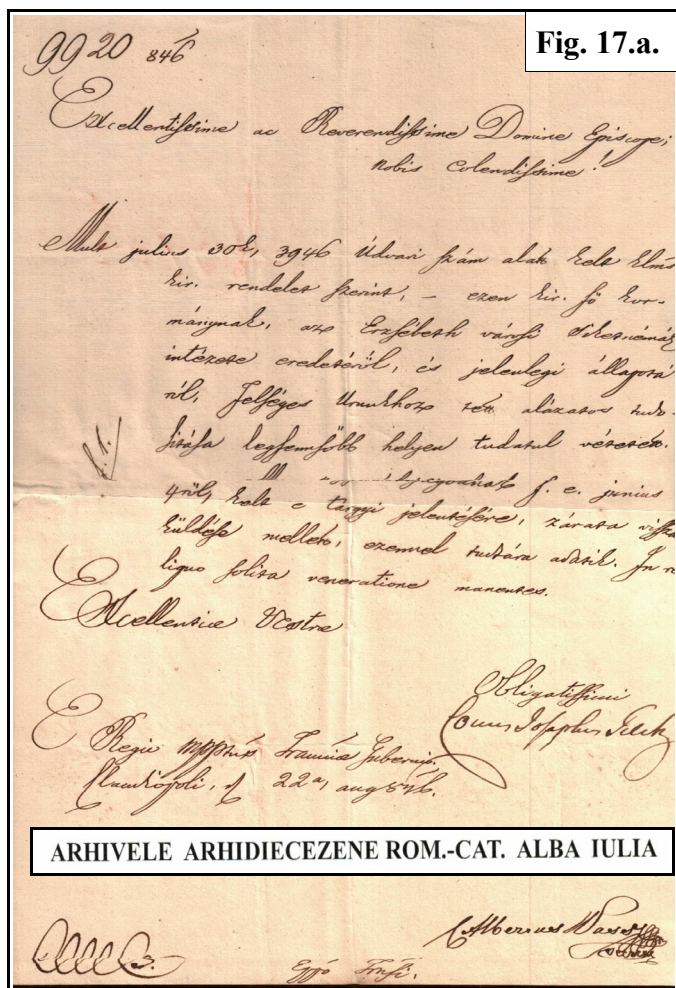 Fig. 17.a.
9920 846
Excellentissime ac Reverendissime Domine Episcope;
nobis colendissime!
Mult julius 30k, 3946 Udvari szám alatt kelt
kir. rendelet szerint, – ezen kir. fő kor-
mánynak, az Erzsébeth városi Siketnémák
intézete eredetéről, és jelenlegi állapotá
ról, Felséges Urunkhoz tett alázatos tudo-
sitása legfensőbb helyen tudatul vétetett.
f. e. junius
4ről, kelt e tárgyi jelentésére, zárata vissza
küldése mellett, ezennel tudtára adatik. In re
liquo solita veneratione manentes.
Excellentiae Vestrae
Obligatissimi
Comes Josephus
E Regio Gubernio.
Claudiopoli, d 22a, aug 846.
ARHIVELE ARHIDIECEZENE ROM.-CAT. ALBA IULIA